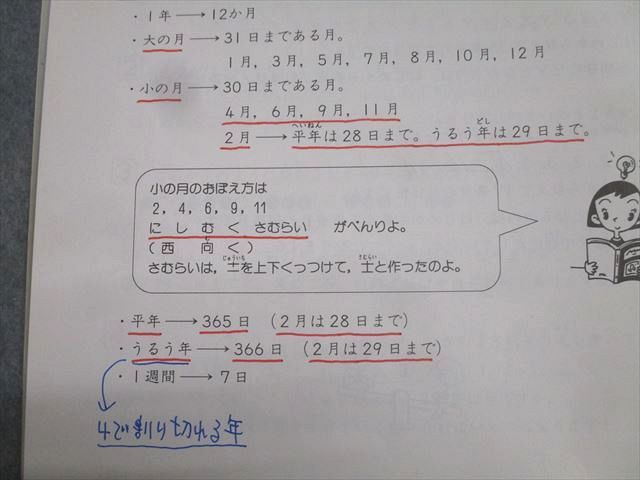 ・1年 → 12か月
・大の月 → 31日まである月。
1月，3月，5月，7月，8月，10月，12月
・小の月 → 30日まである月。
4月，6月，9月，11月
へいねん　とし
2月 → 平年は28日まで。うるう年は29日まで。
小の月のおぼえ方は
2，4，6，9，11
に し む く さむらい　がべんりよ。
む
(西 向 く)
じゅういち　さむらい
さむらいは，士を上下くっつけて，士と作ったのよ。
・平年 → 365日 (2月は28日まで)
・うるう年 → 366日 (2月は29日まで)
・1週間 → 7日
4で割り切れる年